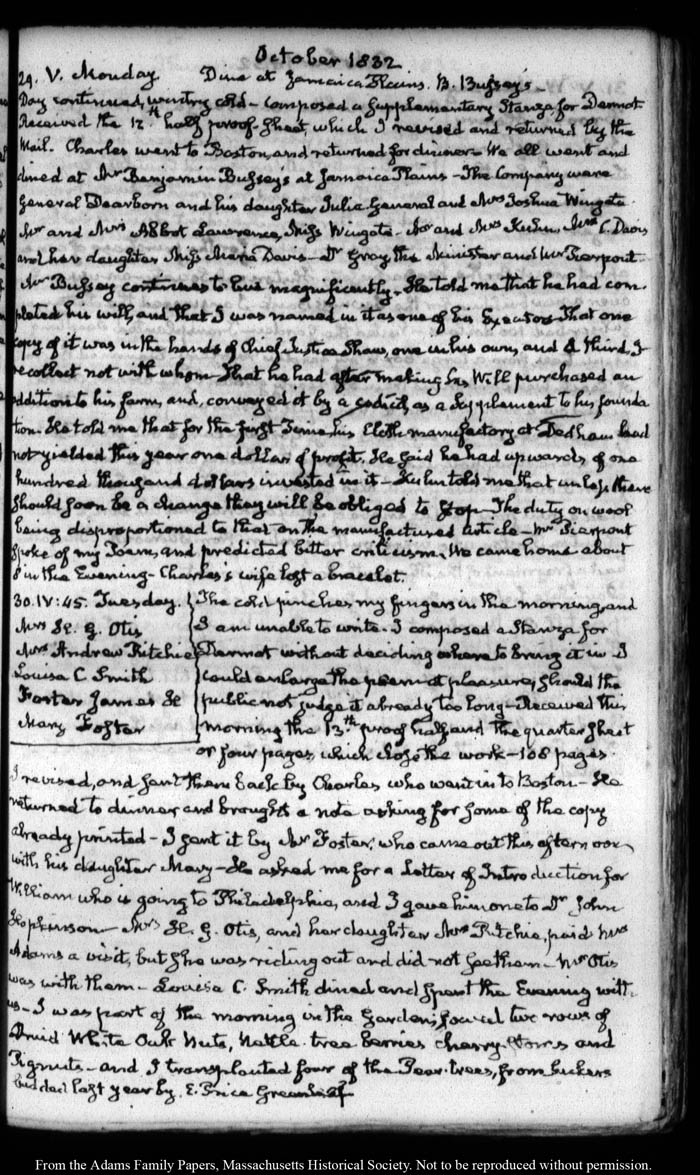 October 1832
29. V. Monday Dine at Jamaica Plains. B. Bussey's
Day continued, wintry cold - Composed a Supplementary Stanza for Dermot.
Received the 12th half proof-sheet, which I revised and returned by the
Mail. Charles went to Boston, and returned for dinner - We all went and
dined at Mr Benjamin Bussey's at Jamaica Plains - The Company were
General Dearborn and his daughter Julia General and Mrs Joshua Wingate
Mr and Mrs Abbot Lawrence, Miss Wingate - Mr and Mrs Kuhn, Mrs C. Davis
and her daughter Miss Maria Davis - Dr Gray the Minister and Mr Pierpont.
Mr Bussey continues to live magnificently - He told me that he had com-
pleted his will, and that I was named in it as one of his Executors - That one
copy of it was in the hands of Chief Justice Shaw, one in his own, and a third, I
recollect not with whom - That he had after making his Will purchased an
addition to his farm, and, conveyed it by a codicil, as a supplement to his founda-
tion. He told me that for the first time his Cloth manufactory at Dedham had
not yielded this year one dollar of profit. He said he had upwards of one
hundred thousand dollars invested in it - Kuhn told me that unless there
should soon be a change they will be obliged to stop - The duty on wool
being disproportioned to that on the manufactured article - Mr Pierpont
spoke of my Poem, and predicted bitter criticism. We came home about
8 in the Evening - Charles's wife lost a bracelet.
30. IV:45. Tuesday.
Mrs H. G. Otis
Mrs Andrew Ritchie
Louisa C Smith
Foster James H
Mary Foster
The cold pinches my fingers in the morning, and
I am unable to write. I composed a Stanza for
Dermot without deciding where to bring it in - I
could enlarge the poem at pleasure, should the
public not judge it already too long - Received this
morning the 13th proof half and the quarter sheet
or four pages, which close the work - 108 pages.
I revised, and sent them back by Charles who went in to Boston - He
returned to dinner and brought a note asking for some of the copy
already printed - I sent it by Mr Foster, who came out this afternoon
with his daughter Mary - He asked me for a Letter of Introduction for
William who is going to Philadelphia, and I gave him one to Dr John
Hopkinson - Mrs H. G. Otis, and her daughter Mrs Ritchie, paid Mrs
Adams a visit, but she was riding out and did not see them - Mr Otis
was with them - Louisa C. Smith dined and spent the Evening with
us - I was part of the morning in the Garden; sowed two rows of
Druid White Oak Nuts, Nettle-tree berries cherry-stones and
Pignuts - and I transplanted four of the Pear-trees, from suckers
budded last year by E. Price Greenleaf
From the Adams Family Papers, Massachusetts Historical Society. Not to be reproduced without permission.